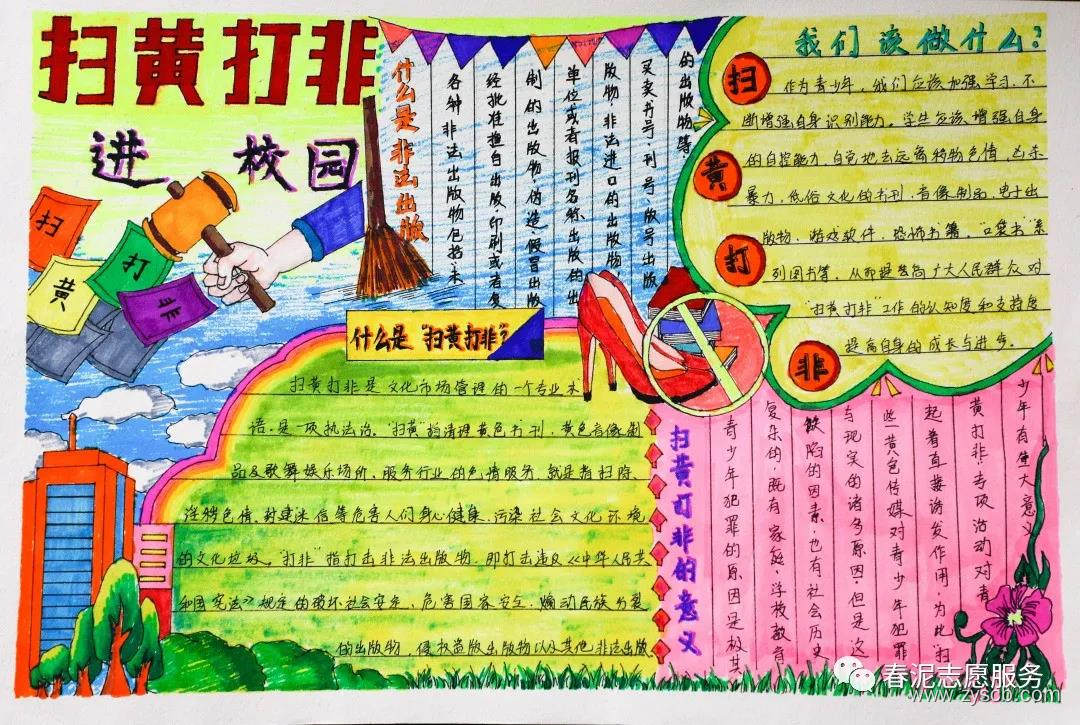 扫黄打非
进 校园
扫
黄
打
非
什么是非法出版
各种非法出版物包括:未
经批准擅自出版、印刷或者复
制的出版物,伪造、假冒出版
单位或者报刊名称出版的出
版物,非法进口的出版物,
买卖书号、刊号、版号出版
的出版物等
我们该做什么?
扫
黄
打
非
作为青少年,我们应该加强学习,不
断增强自身识别能力。学生应该增强自身
的自控能力,自觉地去远离
色情,凶杀
暴力,低俗文化的书刊,音像制品,电子出
版物,游戏软件,恐怖书籍,“口袋书”系
列图书等,从而提高广大人民群众对
“扫黄打非”工作的认知度和支持度
提高自身的成长与进步。
什么是“扫黄打非”?
扫黄打非是文化市场管理的一个专业术
语,是一项执法活。“扫黄”指清理黄色书刊,黄色音像制
品及歌舞娱乐场所,服务行业的色情服务,就是指扫除
淫秽色情,封建迷信等危害人们身心健康,污染社会文化环境
的文化垃圾。“打非”指打击非法出版物,即打击违反《中华人民共
和国宪法》规定的破坏社会安定,危害国家安全,煽动民族分裂
的出版物,侵权盗版出版物以及其他非法出版
扫黄打非的意义
青少年犯罪的原因是极其
复杂的,既有家庭,学校教育
缺陷的因素,也有社会历史
与现实的诸多原因,但是这
些黄色传媒对青少年犯罪
起着直接诱发作用,为此“扫
黄打非”专项活动对青
少年有重大意义
春泥志愿服务
www.zyscb.com